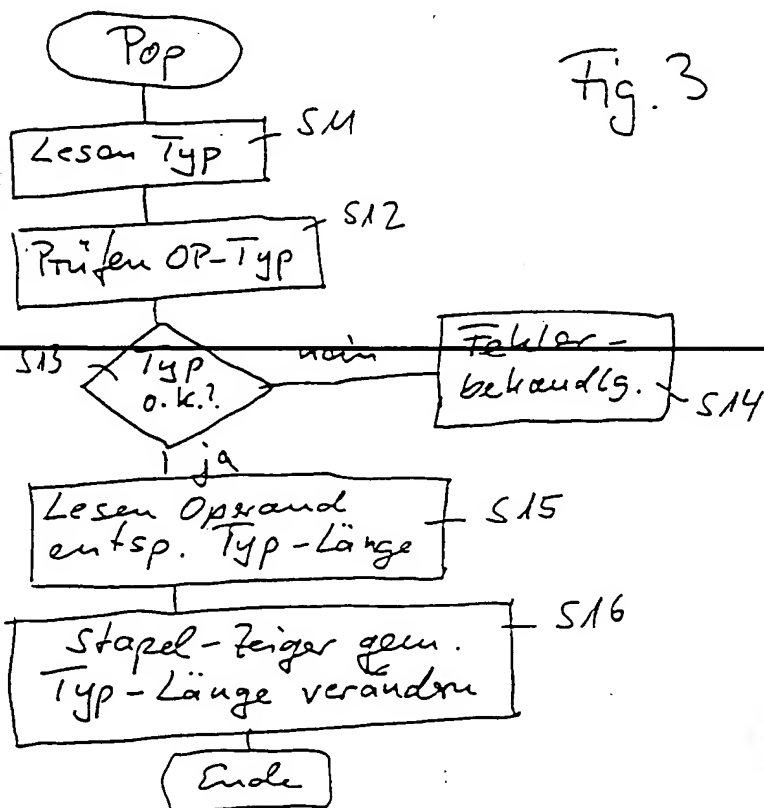 Pop
Fig. 3
Lesen Typ
S11
S12
Prüfen OP-Typ
S13
Typ
o.k.?
nein
Fehler-
behandlg.
S14
ja
Lesen Operand
entsp. Typ-Länge
S15
Stapel-Zeiger gem.
Typ-Länge verändern
S16
Ende